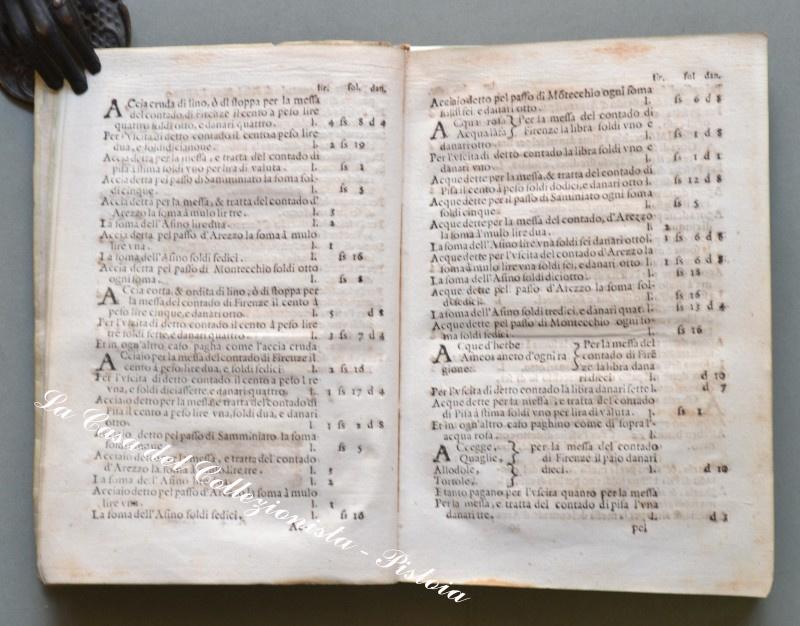 lir. sol. dan.
ACcia cruda di lino, ò di stoppa per la messa
del contado di Firenze il cento à peso lire
quattro soldi otto, e danari quattro. l. 4 ss 8 d 4
Per l'vscita di detto contado il cento a peso lire
due, e soldi dicianoue. l. 2 ss 19
Accia detta per la messa, e tratta del contado di
Pisa à stima soldi vno per lira di valuta. l. ss 1
Accia detta pel passo di Samminiato la soma sol-
di cinque. l. ss 5
Accia detta per la messa, & tratta del contado d'
Arezzo la soma à mulo lire tre. l. 3
La soma dell'Asino lire dua. l. 2
Accia detta pel passo d'Arezzo la soma à mulo
lire vna. l. 1
La soma dell'Asino soldi sedici. l. ss 16
Accia detta pel passo di Montecchio soldi otto
ogni soma. l. ss 8
ACcia cotta, & ordita di lino, ò di stoppa per
la messa del contado di Firenze il cento à
peso lire cinque, e danari otto. l. 5 d 8
Per l'vscita di detto contado il cento à peso lire
tre soldi sette, e danari quattro. l. 3 ss 7 d 4
Et in ogn'altro caso pagha come l'accia cruda
ACciaio per la messa del contado di Firenze il
cento à peso lire dua, e soldi sedici. l. 2 ss 16
Per l'vscita di detto contado il cento a peso lire
vna, e soldi diciassette, e danari quattro. l. 1 ss 17 d 4
Acciaio detto per la messa, e tratta del contado di
Pisa il cento à peso lire vna, soldi dua, e danari
otto. l. 1 ss 2 d 8
Acciaio detto pel passo di Samminiato la soma
soldi cinque. l. ss 5
Acciaio detto per la messa, e tratta del contado
d'Arezzo la soma à mulo lire tre. l. 3
La soma de l'Asino lire l. 2
Acciaio detto pel passo d'Arezzo la soma à mulo
lire vna. l. 1
La soma dell'Asino soldi sedici. l. ss 16
Ac-
lir. sol dan.
Acciaio detto pel passo di Mõtecchio ogni soma
soldi sei, e danari otto. l. ss 6 d 8
ACqua rosa } Per la messa del contado di
Acqua lāfa } Firenze la libra soldi vno e
danari otto. l. ss 1 d 8
Per l'vscita di detto contado la libra soldi vno e
danari vno. l. ss 1 d 1
Acque dette per la messa, & tratta del contado di
Pisa il cento à peso soldi dodici, e danari otto l. ss 12 d 8
Acque dette per il passo di Samminiato ogni soma
soldi cinque. l. ss 5
Acque dette per la messa del contado, d'Arezzo
la soma à mulo lire dua. l. 2
La soma dell'Asino lire vna soldi sei danari otto l. 1 ss 6 d 8
Acque dette per l'vscita del contado d'Arezzo la
soma à mulo lire vna soldi sei, e danari otto l. 1 ss 6 d 8
La soma dell'Asino soldi diciotto. l. ss 18
Acque dette pel passo d'Arezzo la soma sol-
di sedici. l. ss 16
La soma dell'Asino soldi tredici, e danari quat. l. ss 13 d 4
Acque dette pel passo di Montecchio ogni so-
ma soldi sedici. l. ss 16
ACque d'herbe } Per la messa del
Aineo aneto d'ogni ra } contado di Firē
gione. } ze la libra dana
ri dieci l. d 10
Per l'vscita di detto contado la libra danari sette l. d 7
Acque dette per la messa, e tratta del contado
di Pisa à stima soldi vno per lira di valuta. l. ss 1
Et in ogn'altro caso paghino come di sopra l'ac-
acqua rosa.
ACcegge, } per la messa del contado
Quaglie, } di Firenze il paio danari
Allodole, } dieci. l. d 10
Tortole,
Et tanto pagano per l'vscita quanto per la messa
Per la messa, e tratta del contado di pisa l'vna
danari tre. l. d 3
pel
La Casa del Collezionista - Pistoia